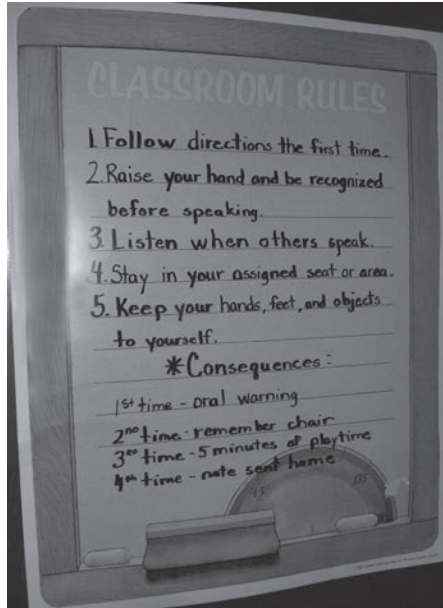 CLASSROOM RULES
1. Follow directions the first time.
2. Raise your hand and be recognized
before speaking.
3. Listen when others speak.
4. Stay in your assigned seat or area.
5. Keep your hands, feet, and objects
to yourself.
*Consequences:
1st time - oral warning
2nd time - remember chair
3rd time - 5 minutes of playtime
4th time - note sent home
45